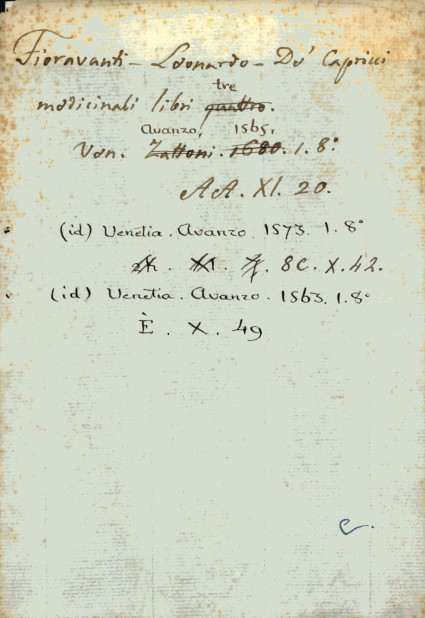 Fioravanti - Leonardo - De' Capricci
tre
medicinali libri quattro.
Avanzo, 1565,
Ven. Zattoni. 1680. 1. 8°.
AA. XI. 20.
(id) Venetia. Avanzo. 1573. 1. 8°
XI. 8C. X. 42.
(id) Venetia. Avanzo. 1563. 1. 8°
È. X. 49
C.